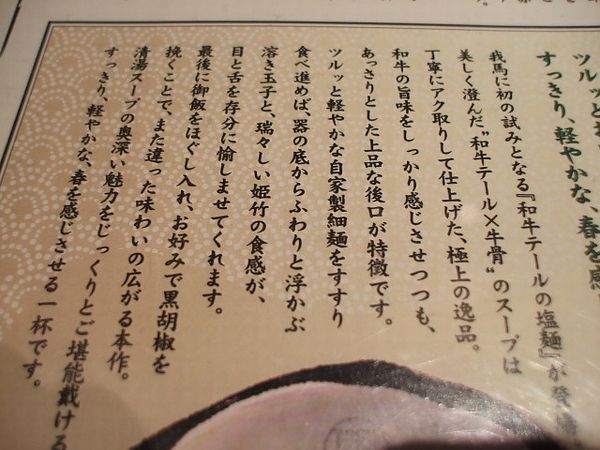 ツルッと
すっきり、軽やかな、春を感
我馬に初の試みとなる『和牛テールの塩麺』が発
美しく澄んだ"和牛テール×牛骨"のスープは
丁寧にアク取りして仕上げた、極上の逸品。
和牛の旨味をしっかり感じさせつつも、
あっさりとした上品な後口が特徴です。
ツルッと軽やかな自家製細麺をすすり
食べ進めば、器の底からふわりと浮かぶ
溶き玉子と、瑞々しい姫竹の食感が、
目と舌を存分に愉しませてくれます。
最後に御飯をほぐし入れ、お好みで黒胡椒を
挽くことで、また違った味わいの広がる本作。
清湯スープの奥深い魅力をじっくりとご堪能戴ける
すっきり、軽やかな、春を感じさせる一杯です。